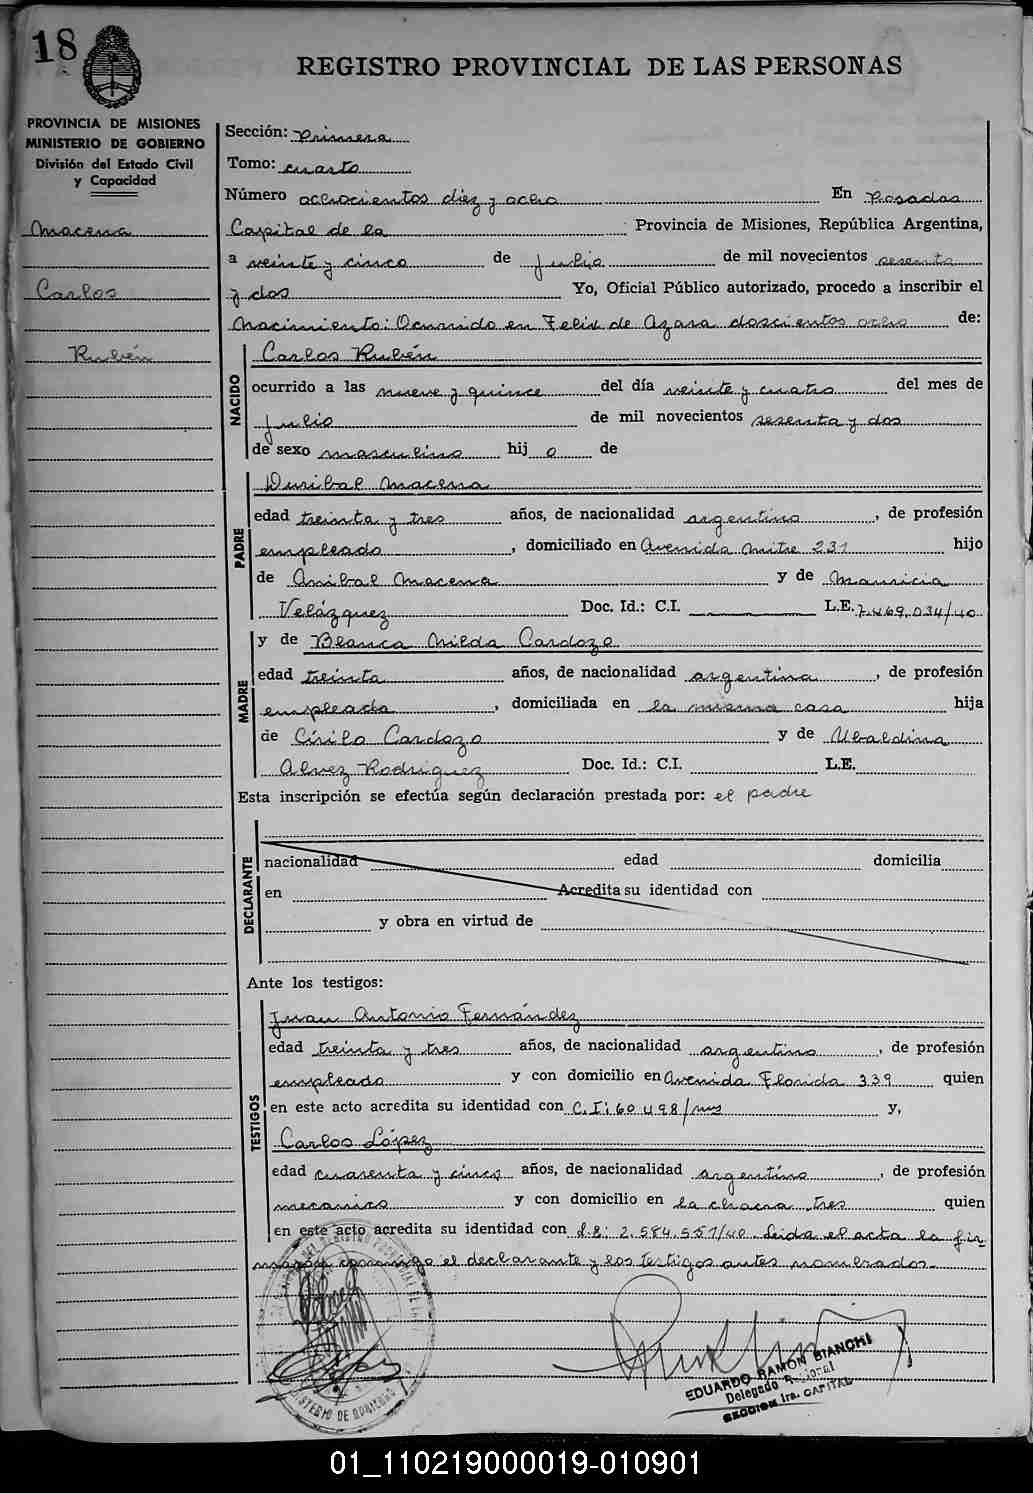 18
REGISTRO PROVINCIAL DE LAS PERSONAS
PROVINCIA DE MISIONES
MINISTERIO DE GOBIERNO
División del Estado Civil
y Capacidad
Macena
Carlos
Rubén
Sección: Primera
Tomo: cuarto
Número ochocientos diez y ocho En Posadas
Capital de la Provincia de Misiones, República Argentina,
a veinte y cinco de Julio de mil novecientos sesenta
y dos Yo, Oficial Público autorizado, procedo a inscribir el
Nacimiento: Ocurrido en Felix de Azara doscientos ocho de:
NACIDO
Carlos Rubén
ocurrido a las nueve y quince del día veinte y cuatro del mes de
Julio de mil novecientos sesenta y dos
de sexo masculino hij o de
PADRE
Duribal Macena
edad treinta y tres años, de nacionalidad argentino, de profesión
empleado, domiciliado en Avenida Mitre 231 hijo
de Anibal Macena y de Mauricia
Velázquez Doc. Id.: C.I. L.E. 7.469.034/40
MADRE
y de Blanca Nilda Cardozo
edad treinta años, de nacionalidad argentina, de profesión
empleada, domiciliada en la misma casa hija
de Cirilo Cardozo y de Ubaldina
Alvez Rodriguez Doc. Id.: C.I. L.E.
Esta inscripción se efectúa según declaración prestada por: el padre
DECLARANTE
nacionalidad edad domicilia
en Acredita su identidad con
y obra en virtud de
Ante los testigos:
TESTIGOS
Juan Antonio Fernández
edad treinta y tres años, de nacionalidad argentino, de profesión
empleado y con domicilio en Avenida Florida 339 quien
en este acto acredita su identidad con C.I: 60498/mns y,
Carlos López
edad cuarenta y cinco años, de nacionalidad argentino, de profesión
mecanico y con domicilio en la chacra tres quien
en este acto acredita su identidad con L.E: 2.584.551/40 Leida el acta la fir
man conmigo el declarante y los testigos antes nombrados.
EDUARDO RAMON BIANCHI
Delegado
SECCION 1ra. CAPITAL
01_110219000019-010901